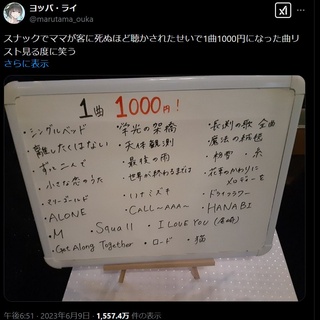 ヨッパ・ライ
@marutama_ouka
スナックでママが客に死ぬほど聴かされたせいで1曲1000円になった曲リスト見る度に笑う
さらに表示
1曲 1000円!
・シングルベッド ・栄光の架橋 ・長渕の歌 全曲
・離したくはない ・天体観測 ・魔法の絨毯
・ずルニ人で ・最後の雨 ・粉雪 ・糸
・小さな恋のうた ・世界が終るまでは ・花束のかわりにメロディーを
・マリーゴールド ・ハナミズキ ・ドライフラワー
・ALONE ・CALL~AAA~ ・HANABI
・M ・Squall ・I LOVE YOU (尾崎)
・Get Along Together ・ロード ・猫
午後6:51 · 2023年6月9日 · 1,557.4万 件の表示